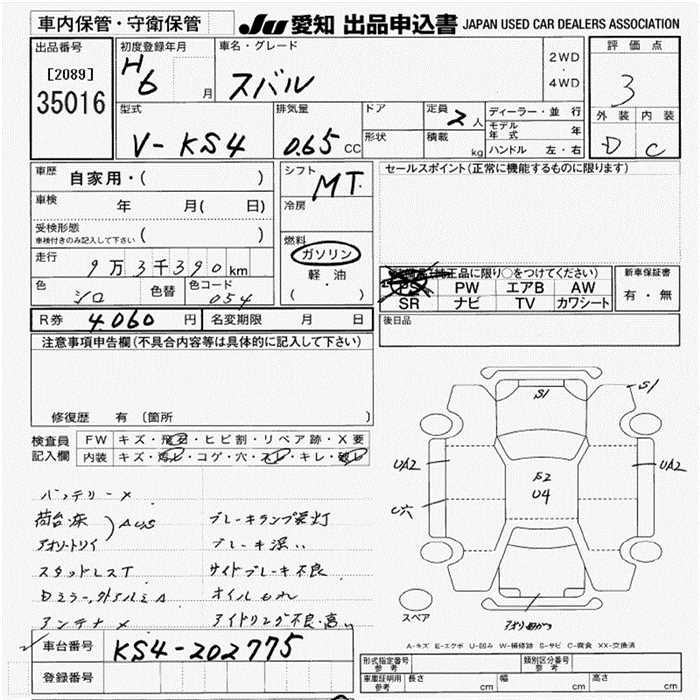 車内保管・守衛保管
JU 愛知 出品申込書 JAPAN USED CAR DEALERS ASSOCIATION
出品番号
[2089]
35016
初度登録年月
H6 月
車名・グレード
スバル
2WD
・
4WD
評価点
3
外装 内装
D C
型式
V-KS4
排気量
0.65 CC
ドア
形状
定員 2 人
積載 kg
ディーラー・並行
モデル年式 年
ハンドル 左・右
車歴 自家用・( )
車検 年 月( 日)
受検形態
車検付きのみ記入して下さい ( )
走行 9万3千390km
色 シロ 色替 色コード 054
シフト MT
冷房
燃料
ガソリン
軽油
( )
セールスポイント(正常に機能するものに限ります)
正品に限り○をつけてください)
PS PW エアB AW
SR ナビ TV カワシート
新車保証書
有・無
R券 4,060 円 名変期限 月 日
後日品
注意事項申告欄(不具合内容等は具体的に記入して下さい)
修復歴 有 〔箇所
検査員記入欄
FW キズ・飛石・ヒビ割・リペア跡・X要
内装 キズ・汚レ・コゲ・穴・スレ・キレ・破レ
バッテリーX
荷台・床
アオリ・トリイ
AUS
スタッドレスT
Dミラー,外ドアルミA
アンテナX
ブレーキランプ常灯
ブレーキ深い
サイドブレーキ不良
オイルもれ
アイドリング不良・高い
S1
S1
UA2
UA2
S2
U4
U穴
スペア
A-キズ E-エクボ U-凹み W-補修跡 S-サビ C-腐食 XX-交換済
車台番号 KS4-202775
登録番号
形式指定番号
参考
類別区分番号
参考
車庫証明用
参考
長さ cm 幅 cm 高さ cm